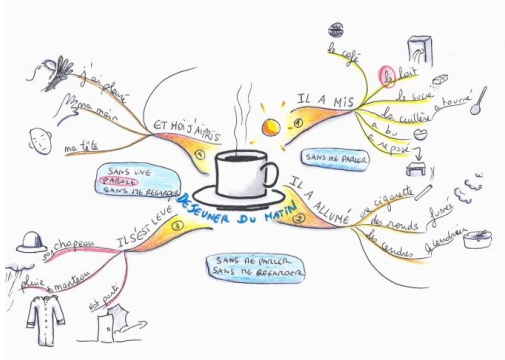 DEJEUNER DU MATIN
IL A MIS
1
le café
le lait
le sucre
la cuillère
a tourné
a bu
a reposé
SANS ME PARLER
IL A ALLUMÉ
2
une cigarette
des ronds
fumée
les cendres
cendrier
SANS ME PARLER
SANS ME REGARDER
IL S'EST LEVÉ
3
son chapeau
pluie
manteau
est parti
SANS UNE
PAROLE
SANS ME REGARDER
ET MOI J'AI PRIS
4
j'ai pleuré
ma main
ma tête